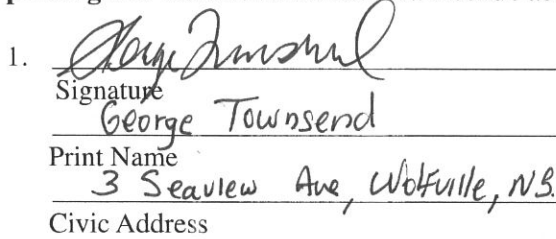 1. George Townsend
Signature
George Townsend
Print Name
3 Seaview Ave, Wolfville, N.S.
Civic Address